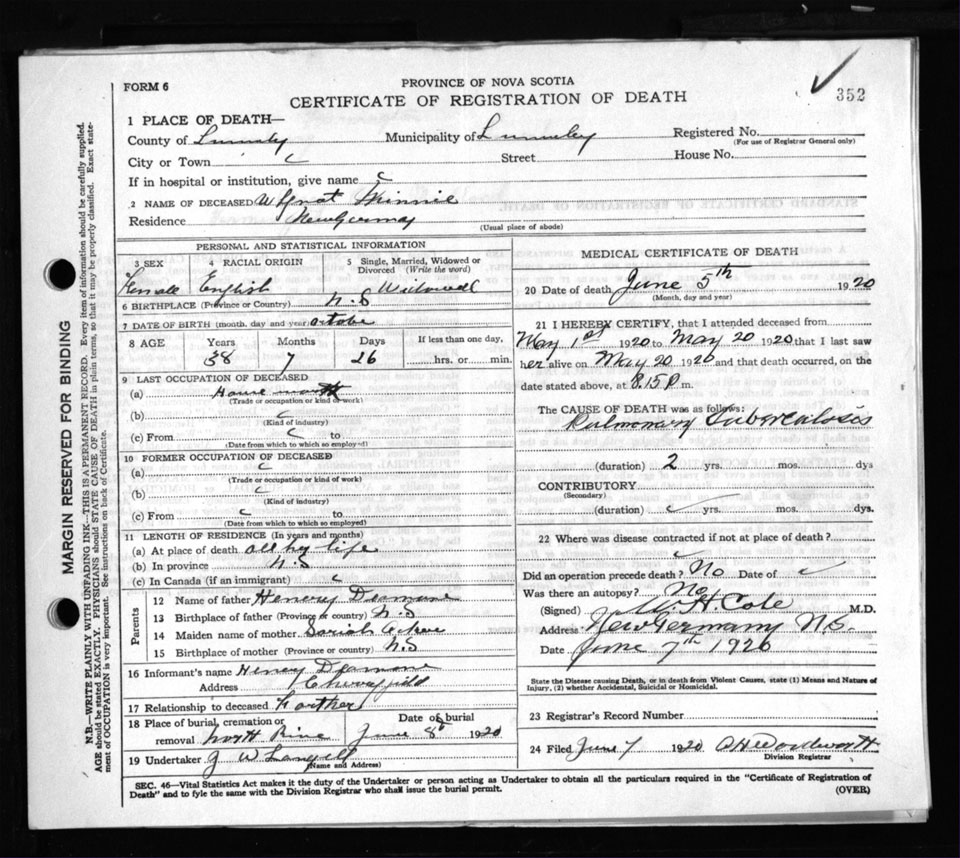 FORM 6
PROVINCE OF NOVA SCOTIA
CERTIFICATE OF REGISTRATION OF DEATH
352
1 PLACE OF DEATH—
County of Municipality of Registered No.
(For use of Registrar General only)
City or Town Street House No.
If in hospital or institution, give name
2 NAME OF DECEASED Minnie
Residence New Germany
(Usual place of abode)
PERSONAL AND STATISTICAL INFORMATION
3 SEX 4 RACIAL ORIGIN 5 Single, Married, Widowed or Divorced (Write the word)
Female English Widowed
6 BIRTHPLACE (Province or Country) N.S
7 DATE OF BIRTH (month, day and year) October
8 AGE Years Months Days If less than one day,
38 7 26 hrs. or min.
9 LAST OCCUPATION OF DECEASED
(a) House
(Trade or occupation or kind of work)
(b)
(Kind of industry)
(c) From to
(Date from which to which so employed)
10 FORMER OCCUPATION OF DECEASED
(a)
(Trade or occupation or kind of work)
(b)
(Kind of industry)
(c) From to
(Date from which to which so employed)
11 LENGTH OF RESIDENCE (In years and months)
(a) At place of death all hy life
(b) In province N.S
(c) In Canada (if an immigrant)
Parents
12 Name of father Henery
13 Birthplace of father (Province or country) N.S
14 Maiden name of mother Sariah
15 Birthplace of mother (Province or country) N.S
16 Informant's name Henery
Address
17 Relationship to deceased Farther
18 Place of burial, cremation or removal North River Date of burial June 8th 1920
19 Undertaker J W Langell
(Name and Address)
MEDICAL CERTIFICATE OF DEATH
20 Date of death June 5th 1920
(Month, day and year)
21 I HEREBY CERTIFY, that I attended deceased from
May 1st 1920 to May 20 1920 that I last saw
her alive on May 20 1920 and that death occurred, on the
date stated above, at 8.15 P m.
The CAUSE OF DEATH was as follows:
Pulmonary Tuberculosis
(duration) 2 yrs. mos. dys
CONTRIBUTORY
(Secondary)
(duration) yrs. mos. dys.
22 Where was disease contracted if not at place of death?
Did an operation precede death? No Date of
Was there an autopsy? No
(Signed) W. H. Cole M.D.
Address New Germany N.S.
Date June 7th 1920
State the Disease causing Death, or in death from Violent Causes, state (1) Means and Nature of
Injury, (2) whether Accidental, Suicidal or Homicidal.
23 Registrar's Record Number
24 Filed June 7 1920
Division Registrar
SEC. 46—Vital Statistics Act makes it the duty of the Undertaker or person acting as Undertaker to obtain all the particulars required in the "Certificate of Registration of
Death" and to fyle the same with the Division Registrar who shall issue the burial permit.
(OVER)
MARGIN RESERVED FOR BINDING
N.B.—WRITE PLAINLY WITH UNFADING INK—THIS IS A PERMANENT RECORD. Every item of information should be carefully supplied.
AGE should be stated EXACTLY. PHYSICIANS should STATE CAUSE OF DEATH in plain terms, so that it may be properly classified. Exact state-
ment of OCCUPATION is very important. See instructions on back of Certificate.